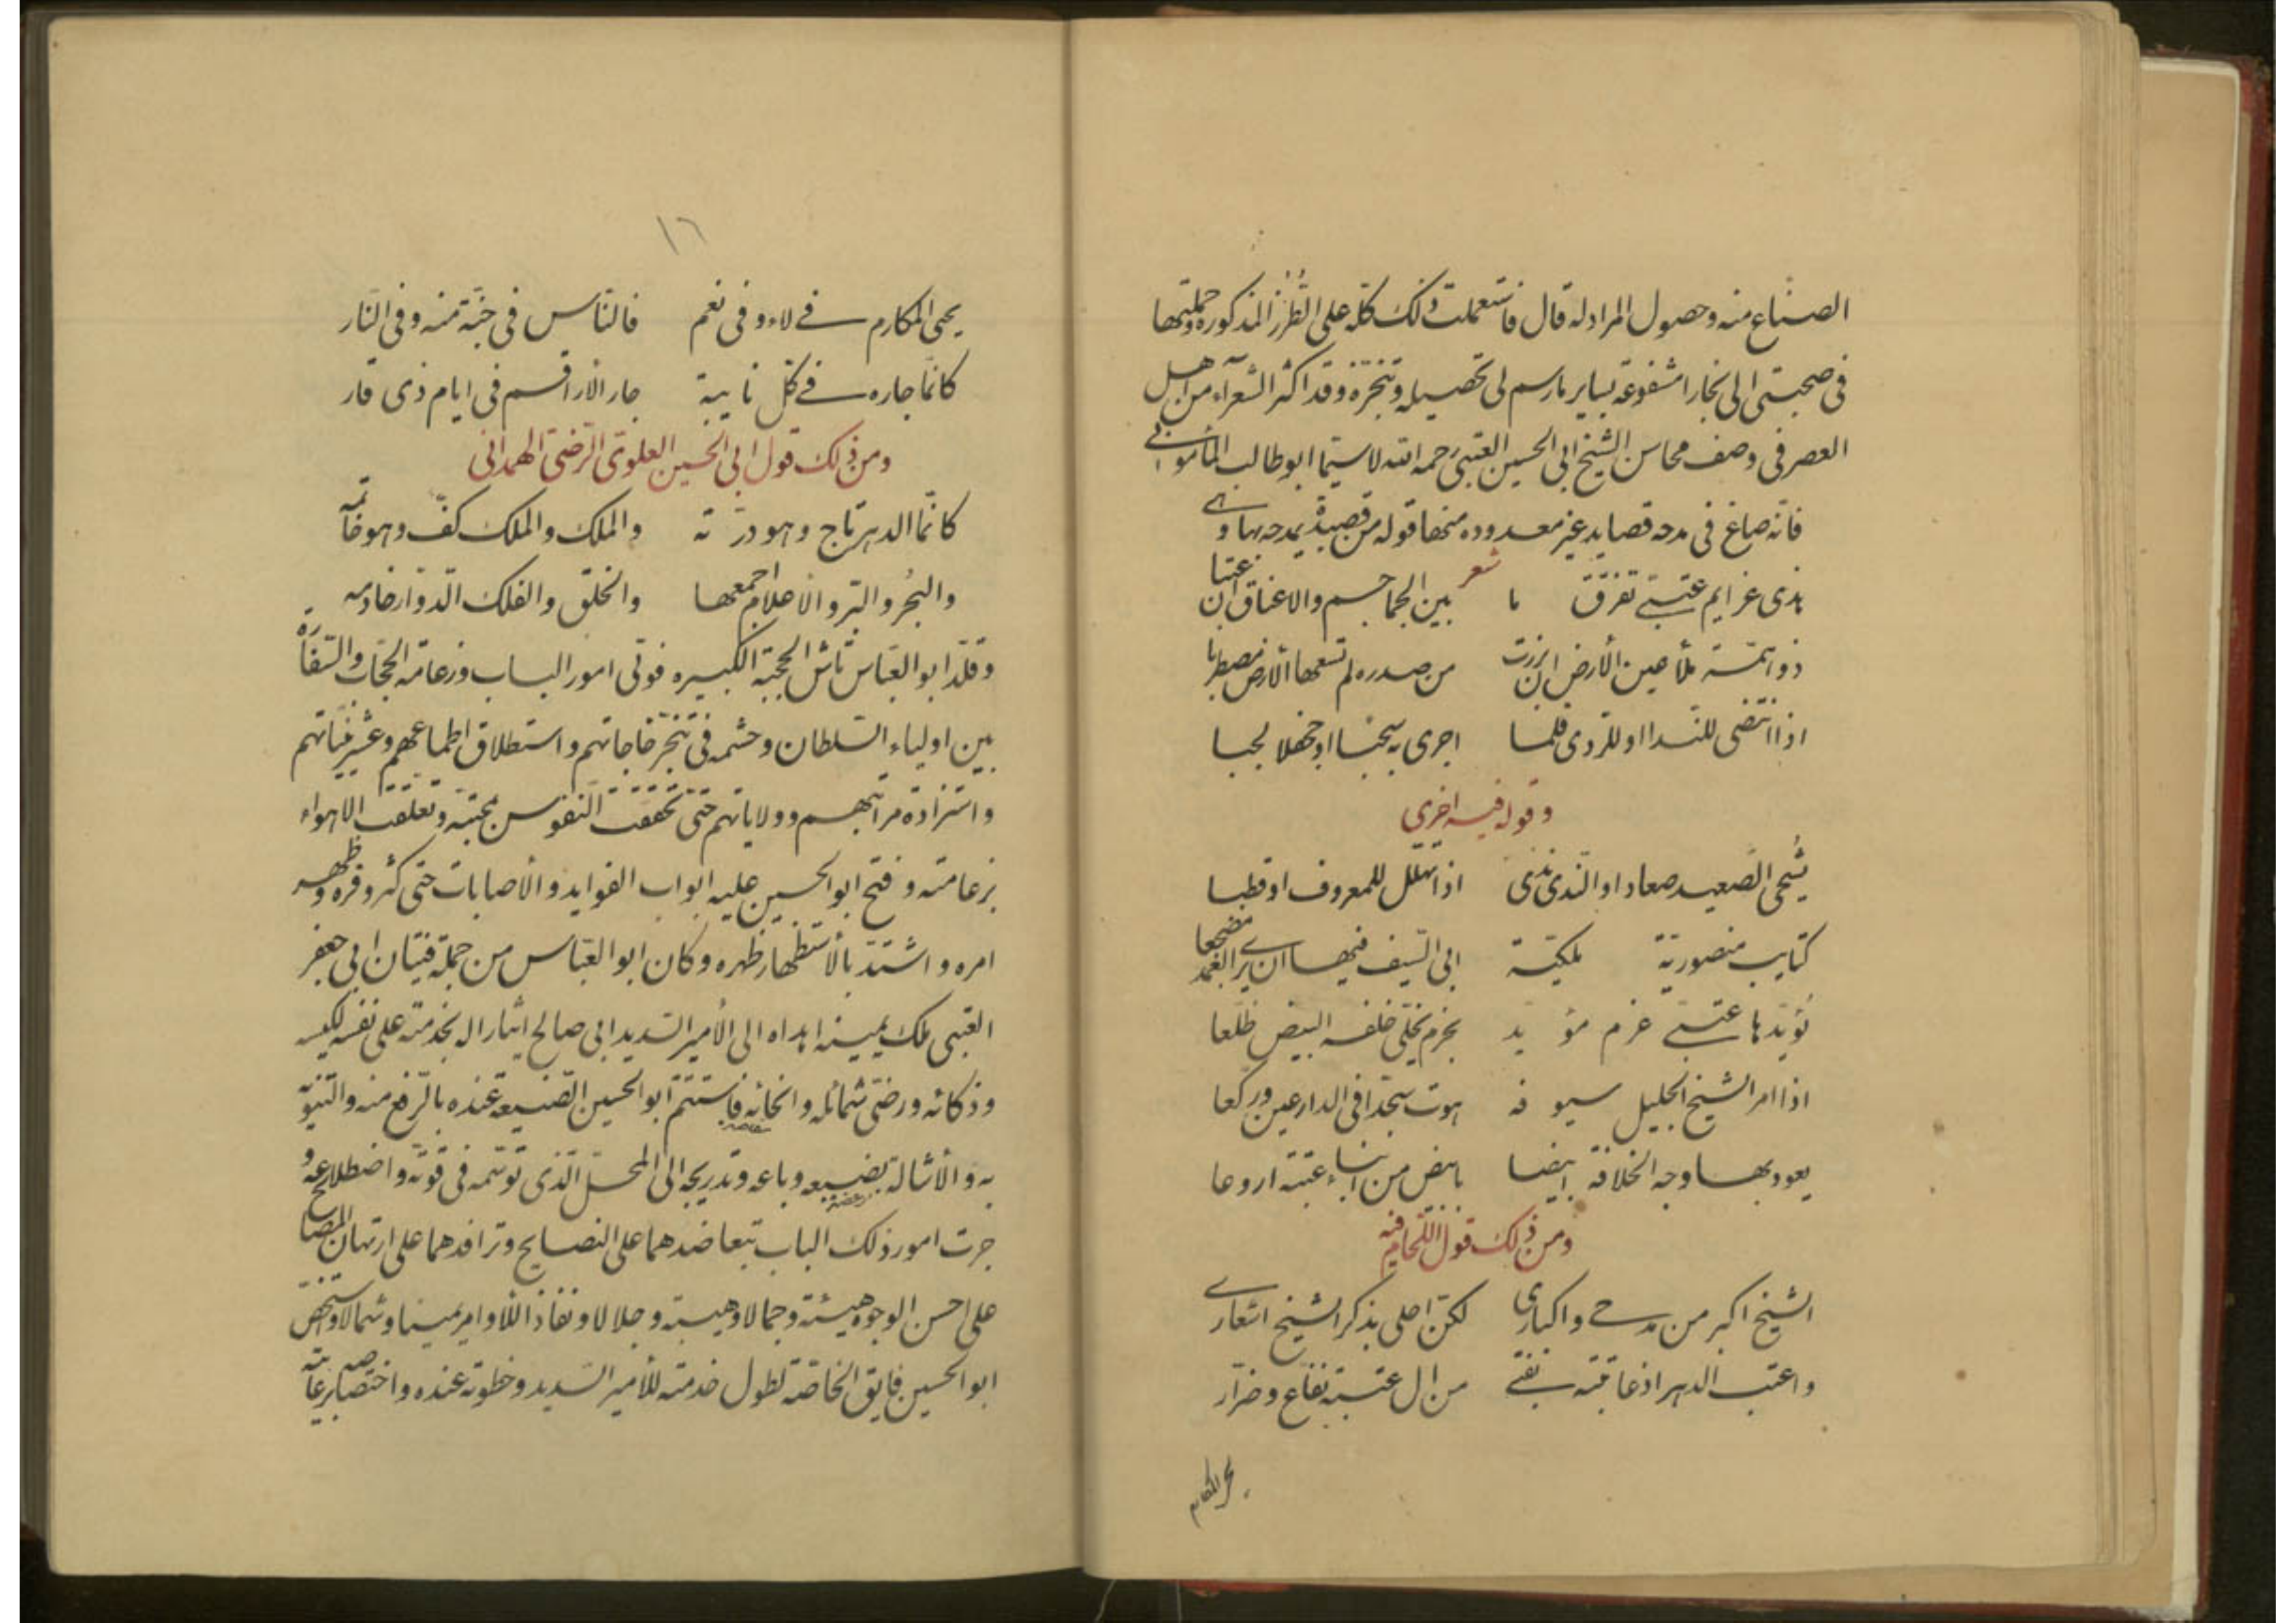 الصنّاع منه وحصول المراد له قال فاستعملت ذلك كلّه على الطُرُز المذكوره وحملتها
فى صحبتى الى بخارا مشفوعة بساير مارسم لى تحصيله وتنجّزه وقد اكثر الشعرآء من اهل
العصر فى وصف محاسن الشيخ ابى الحسين العتبى رحمه الله لاسيّما ابو طالب المأمونى
فانّه صاغ فى مدحه قصايد غير معدوده منها قوله من قصيدة يمدحه بها وهى
شعر
بذى عزايم عتبىّ تفرّق ما بين الجماجم والاعناق ان عتبا
ذو همّة ملأ عين الأرض ان برزت من صدره لم تسعها الأرض مضطربا
اذا انتضى للندا او للرّدى قلما اجرى به سحبا او جحفلا لجبا
وقوله فيه اخرى
يُنحى الصّعيد صعادا والنّدى ندى اذا تهلّل للمعروف او قطبا
كتايب منصوريّة ملكيّة ابى السّيف فيها ان يرى الغمد مضجعا
يُؤيّدها عتبىّ عزم مؤيّد بحزم يخلّى خلفه البيض ظلّعا
اذا امر الشيخ الجليل سيوفه هوت سجّدا فى الدارعين وركّعا
يعود بها وجه الخلافة ابيضا بابيض من ابناء عتبة اروعا
ومن ذلك قول اللّحّام فيه
الشيخ اكبر من مدحى واكبارى لكن احلى بذكر الشيخ اشعارى
واعتب الدهر اذ عاتبته بفتى من ال عتبة نفّاع وضرّار
بحر المكارم
١٦
يحيى المكارم فى لاء وفى نعم فالنّاس فى جنّة منه وفى النّار
كانّما جاره فى كلّ نايبة جار الاراقم فى ايام ذى قار
ومن ذلك قول ابى الحسين العلوىّ الرّضىّ الهمدانى
كانّما الدهر تاج وهو درّته والملك والملك كفّ وهو خاتمه
والبَحُر والبّر والاعلام اجمعها والخلق والفلك الدوّار خادمه
وقلّد ابو العبّاس تاش الحجبة الكبيره فولّى امور الباب وزعامة الحجّاب والسّفارة
بين اولياء السّلطان وحشمه فى تنجّز حاجاتهم واستطلاق اطماعهم وعشرينيّاتهم
واستزادة مراتبهم وولاياتهم حتى تحقّقت النّفوس بمحبّته وتعلّقت الاهواء
بزعامته وفتح ابو الحسين عليه ابواب الفوايد والأصابات حتى كثر وفره وظهر
امره واشتدّ بالأستظهار ظهره وكان ابو العبّاس من جملة فتيان ابى جعفر
العتبى ملك يمينه اهداه الى الأمير السديد ابى صالح ايثارا له بخدمته على نفسه لكيسه
وذكائه ورضىّ شمائله وانحائه فاستتمّ ابو الحسين الصّنيعة عنده بالرّفع منه والتنويه
به والأشالة بضبعه وباعه وتدريجه الى المحلّ الّذى توسّمه فى قوّته واضطلاعه و
جرت امور ذلك الباب بتعاضدهما على النصايح وترافدهما على ارتهان المصالح
على احسن الوجوه هيئة وجمالا وهيبة وجلالا ونفاذ الأوامر يمينا وشمالا واستخصّ
ابو الحسين فايق الخاصّة لطول خدمته للأمير السديد وحظوته عنده واختصاصه برعايته